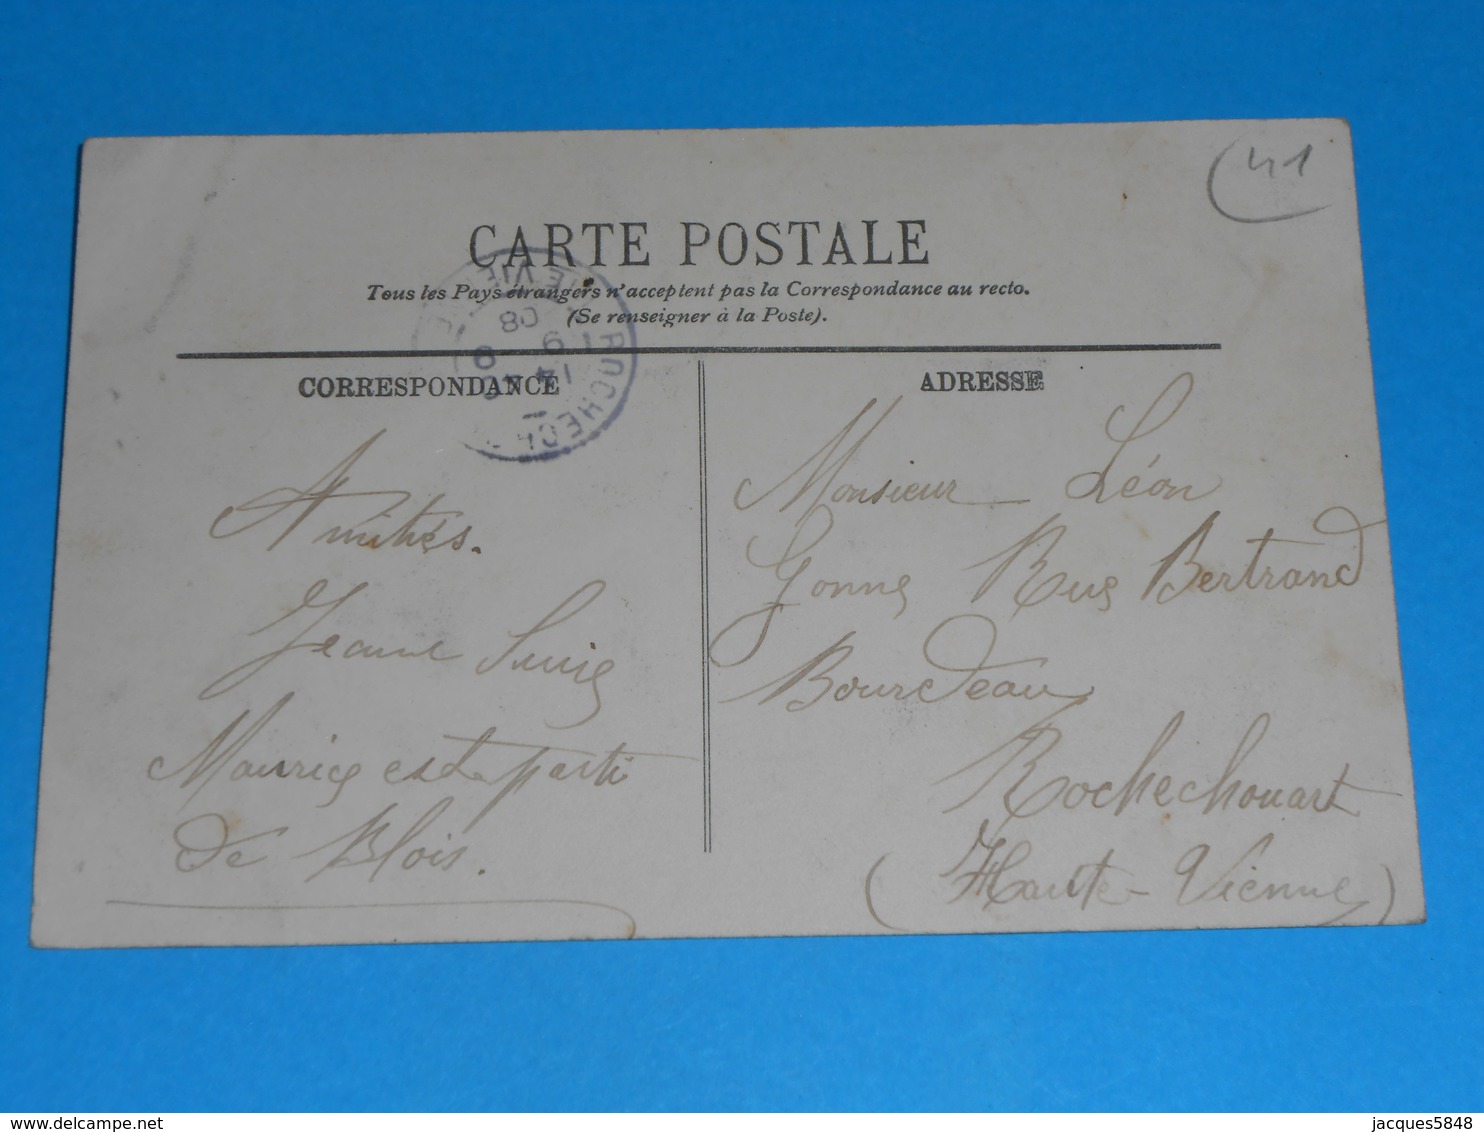 41
CARTE POSTALE
Tous les Pays étrangers n'acceptent pas la Correspondance au recto.
(Se renseigner à la Poste).
CORRESPONDANCE
Amitiés.
Jeanne
Maurice est parti
de Blois.
ADRESSE
Monsieur Léon
Gonne Rue Bertrand
Bourdeau
Rochechouart
(Haute-Vienne)
ROCHEC
08
jacques5848